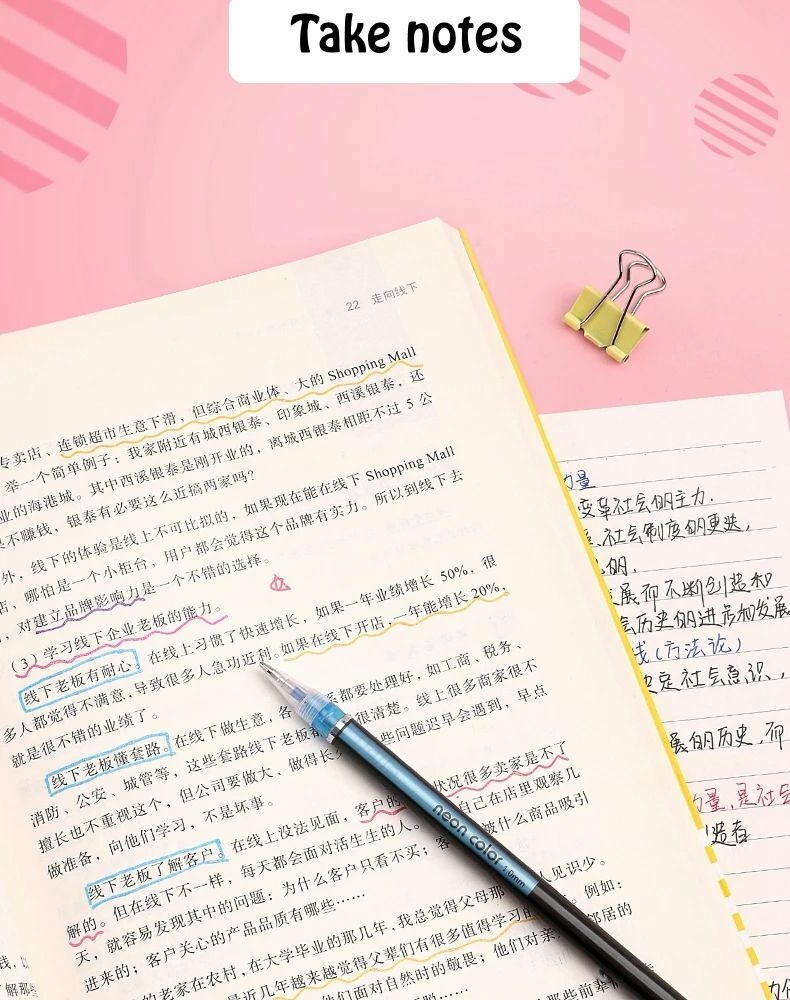 Take notes
22 走向线下
专卖店、连锁超市生意下滑，但综合商业体、大的 Shopping Mall
举一个简单例子：我家附近有城西银泰、印象城、西溪银泰，还
业的海港城。其中西溪银泰是刚开业的，离城西银泰相距不过 5 公
不赚钱，银泰有必要这么近搞两家吗？
外，线下的体验是线上不可比拟的，如果现在能在线下 Shopping Mall
店，哪怕是一个小柜台，用户都会觉得这个品牌有实力。所以到线下去
，对建立品牌影响力是一个不错的选择。
（3）学习线下企业老板的能力。
线下老板有耐心。在线上习惯了快速增长，如果一年业绩增长 50%，很
多人都觉得不满意，导致很多人急功近利。如果在线下开店，一年能增长 20%，
就是很不错的业绩了。
线下老板懂套路。在线下做生意，各 系都要处理好，如工商、税务、
消防、公安、城管等，这些套路线下老板都 很清楚。线上很多商家很不
擅长也不重视这个，但公司要做大、做得长 些问题迟早会遇到，早点
做准备，向他们学习，不是坏事。
线下老板了解客户。在线上没法见面，客户的 状况很多卖家是不了
解的。但在线下不一样，每天都会面对活生生的人。 自己在店里观察几
天，就容易发现其中的问题：为什么客户只看不买；客 被什么商品吸引
进来的；客户关心的产品品质有哪些……
的老家在农村，在大学毕业的那几年，我总觉得父母那 人见识少。
是近几年越来越觉得父辈们有很多值得学习的 例如：
他们面对自然时的敬畏；他们对亲 邻居的
那些前辈
neon color 1.0mm
力量
变革社会的主力.
社会制度的更迭，
的.
展而不断创造和
会历史的进步和发展
线(方法论)
决定社会意识，
展的历史，而
力量，是社会
造者